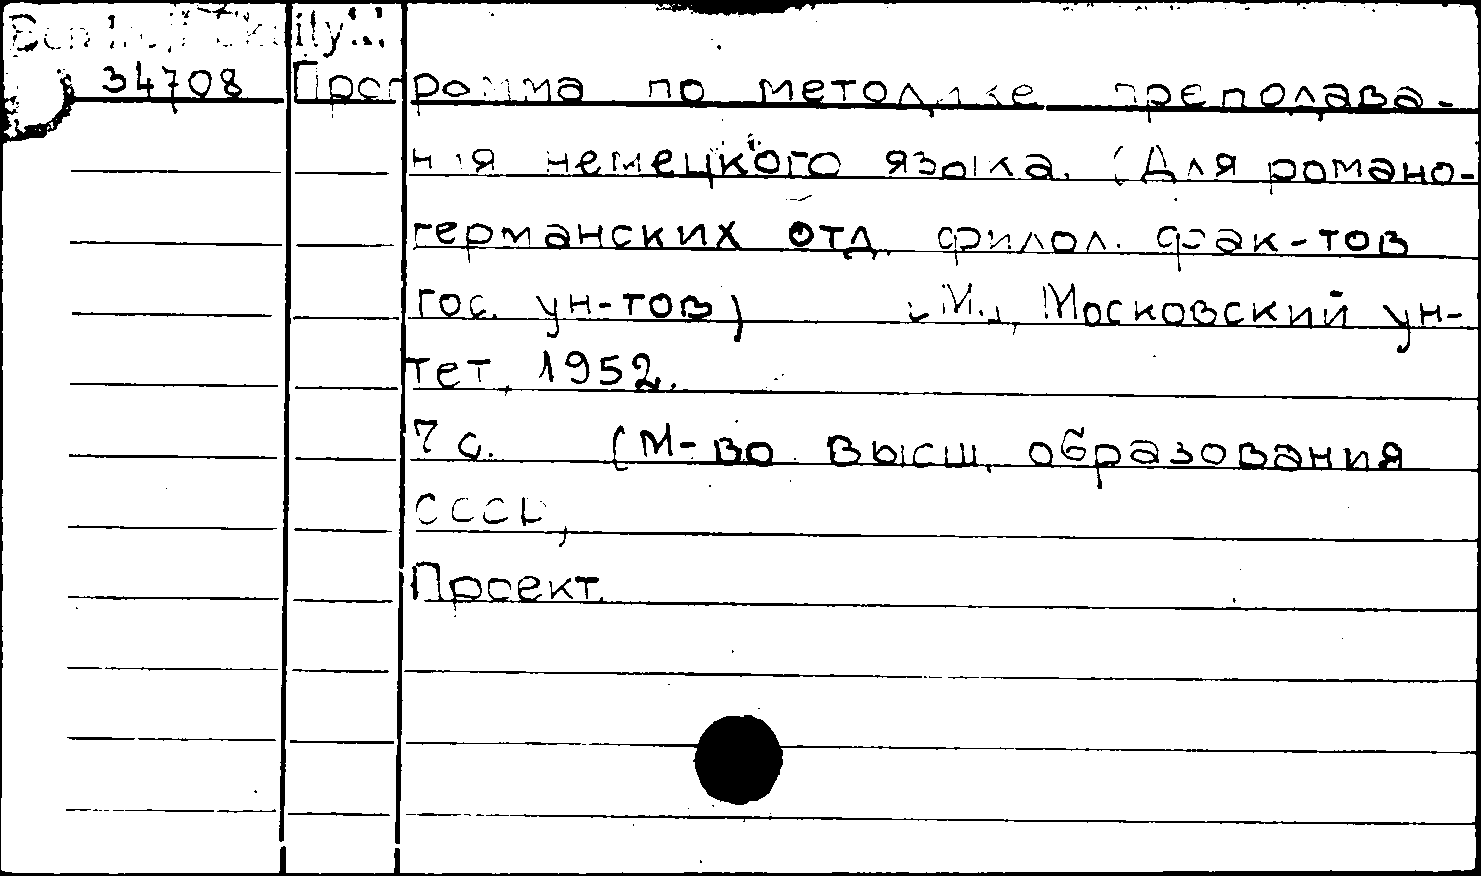 34708 Программа по методике преподава-
ния немецкого языка. (Для романо-
германских отд. филол. фак-тов
гос. ун-тов) [М.], Московский ун-
тет, 1952.
7 с. (М-во высш. образования
СССР)
Проект.